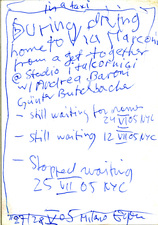 During driving
home to Via Marconi
from a get together
@ Studio Italcornici
w/ Andrea Baroni
Günter Butchbacher
- still waiting for
24 VII 05 NYC
- still waiting
12 VII 05 NYC
- Stopped waiting
25 VII 05 NYC
V 05 Milano